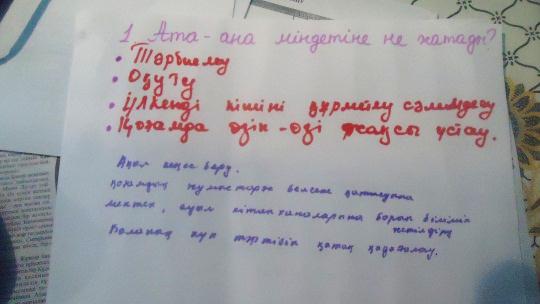 1 Ата-ана міндетіне не жатады?
• Тәрбиелеу
• Оқыту
• Үлкенді кішіні құрметтеу сәлемдесу
• Қоғамда өзін-өзі жақсы ұстау.
Ақыл кеңес беру.
қоғамдық жұмыстарға белсене қатысуына
мектеп, ауыл кітапханаларына барып білімін жетілдіру
Баланың күн тәртібін қатаң қадағалау.